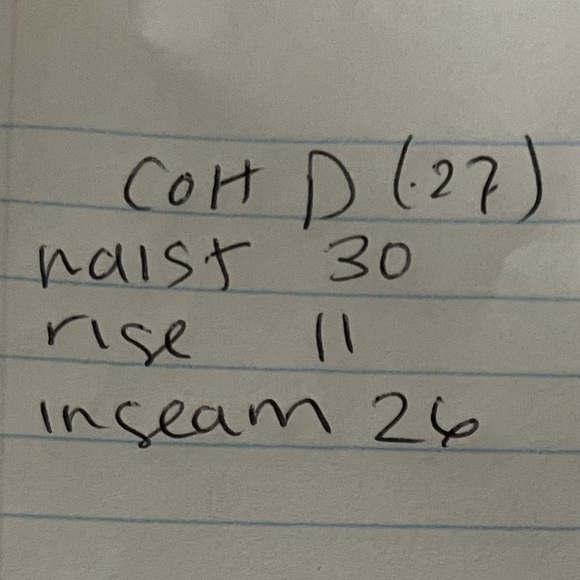 COH D (.27)
waist 30
rise 11
inseam 26